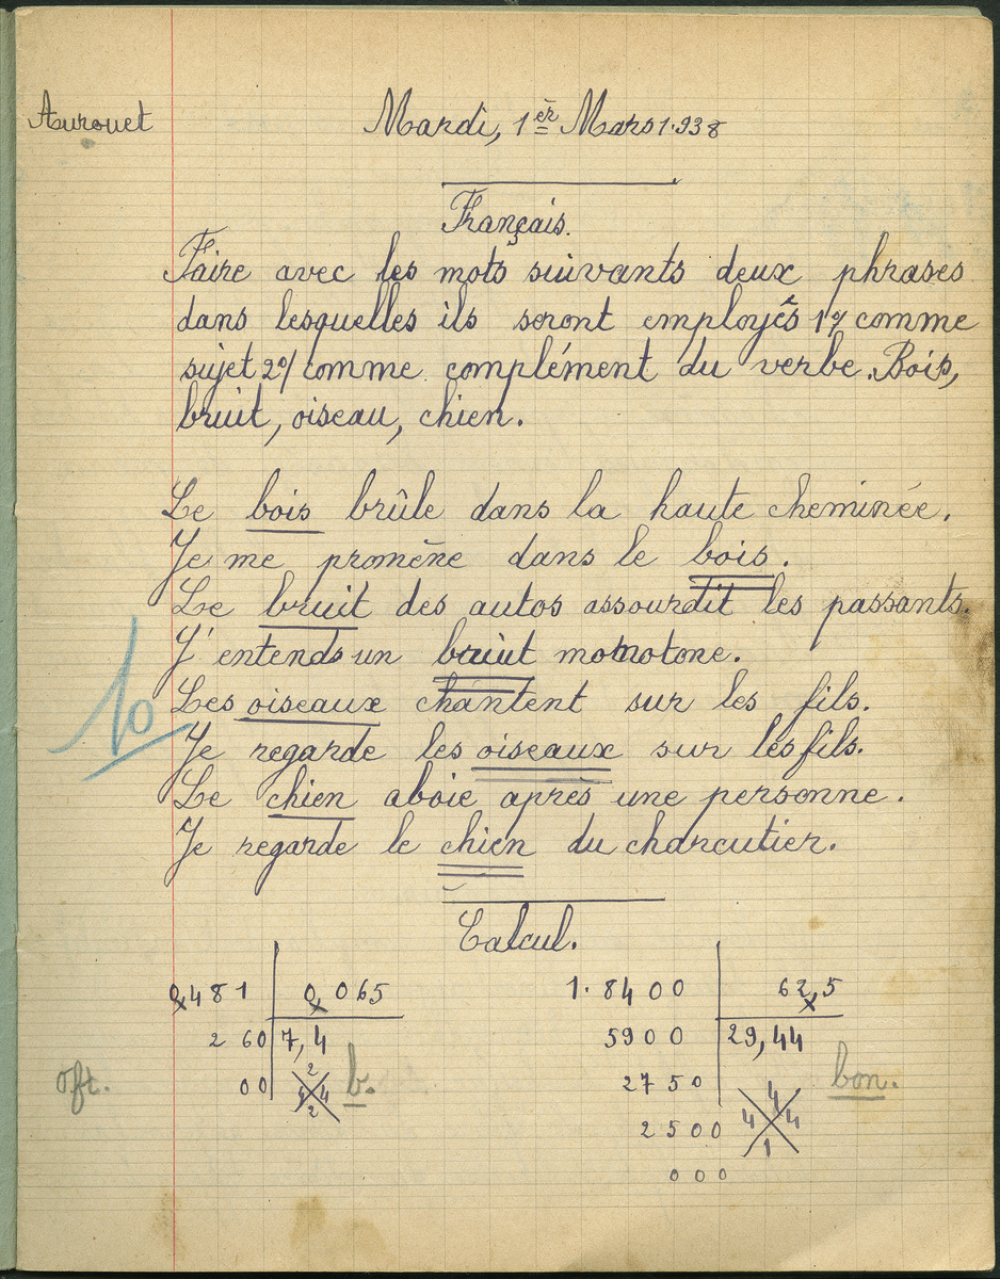 Aurouet
Mardi, 1er Mars 1.938
Français.
Faire avec les mots suivants deux phrases
dans lesquelles ils seront employés 1º/ comme
sujet 2º/ comme complément du verbe. Bois,
bruit, oiseau, chien.
Le bois brûle dans la haute cheminée.
Je me promène dans le bois.
Le bruit des autos assourdit les passants.
J'entends un bruit monotone.
10
Les oiseaux chantent sur les fils.
Je regarde les oiseaux sur les fils.
Le chien aboie après une personne.
Je regarde le chien du charcutier.
Calcul.
0,481 0,065
260 7,4
00
2
4 4
2
b.
1.8400 62,5
5900 29,44
2750
2500
000
4
4 4
1
bon.